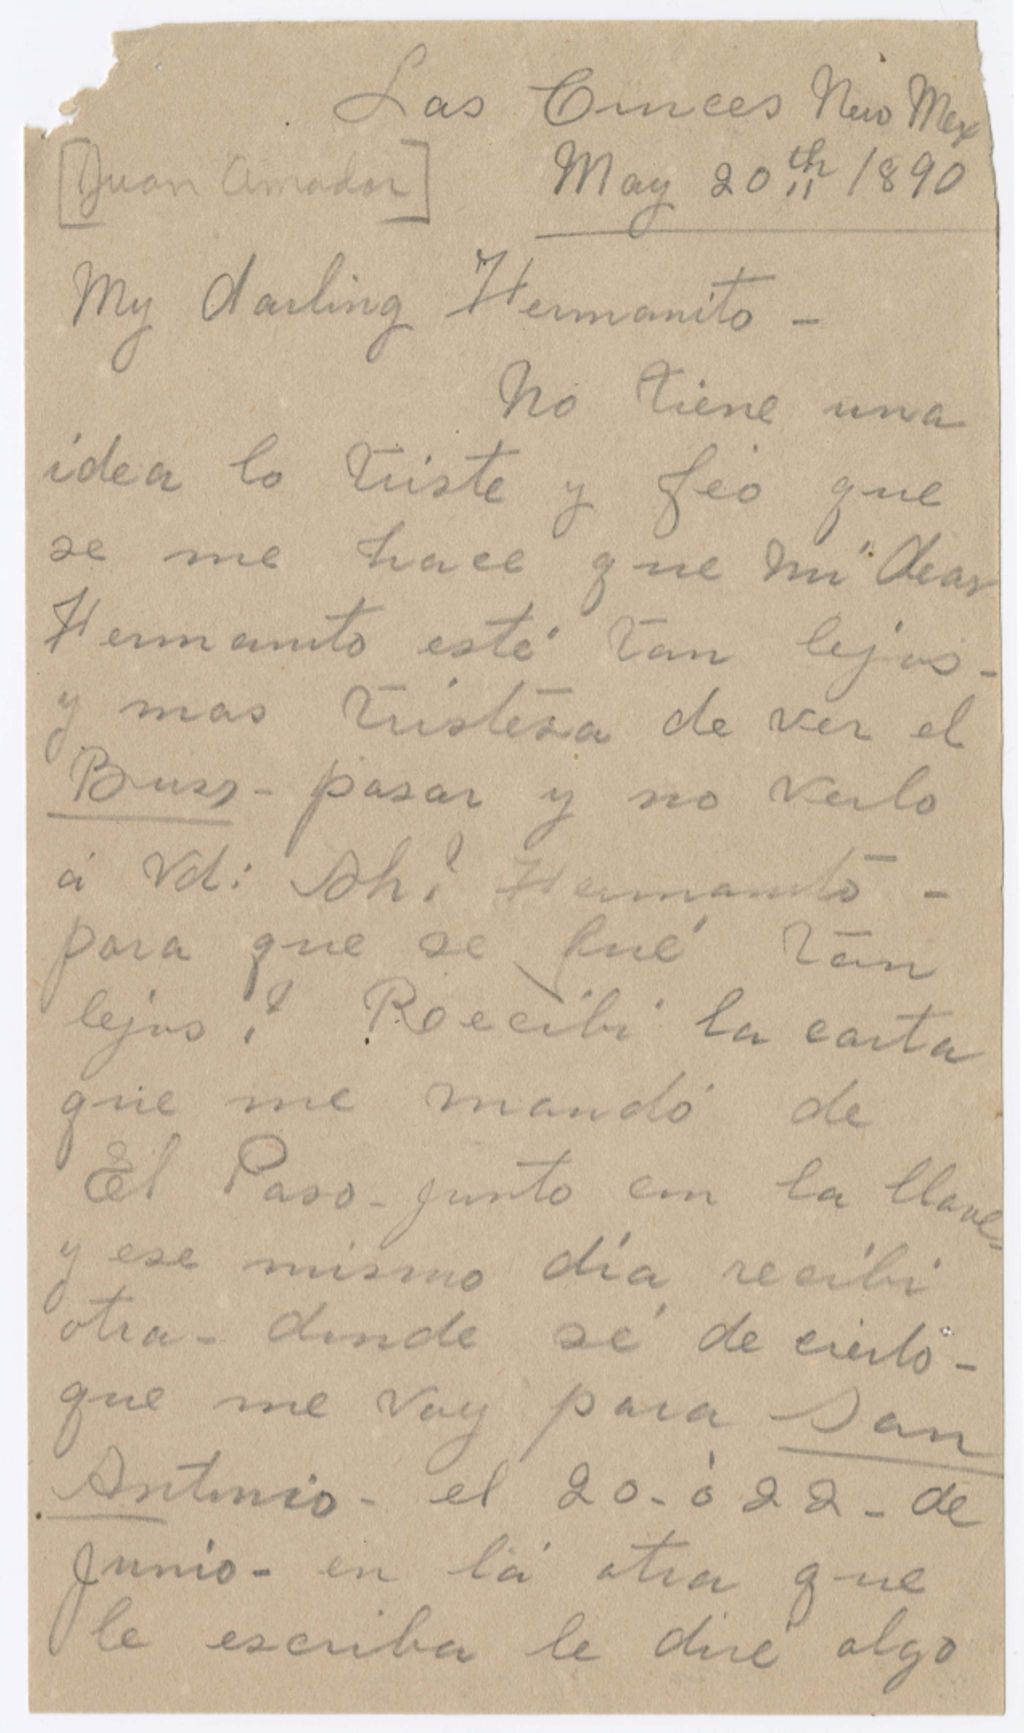 Las Cruces New Mex
[Juan Amador] May 20th 1890
My darling Hermanito -
No tiene una
idea lo triste y feo que
se me hace que mi dear
Hermanito esté tan lejos -
y mas tristesa de ver el
Buss - pasar y no verlo
á Vd: Ah! Hermanito -
para que se fué tan
lejos! Recibi la carta
que me mandó de
El Paso - junto con la llave -
y ese mismo día recibi
otra - donde sé de cierto -
que me voy para San
Antonio - el 20 - ó 22 - de
Junio - en la otra que
le escriba le diré algo